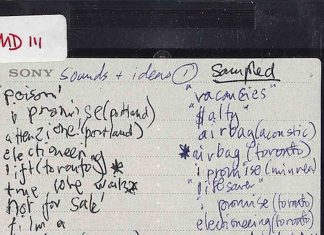 MD 111
SONY sounds + ideas ①
Sampled
poison!
I promise (portland)
attenzione! (portland)
electioneer
lift (toronto) *
true love waits *
not for sale
f. I'm a
"vacancies"
"$alty"
airbag (acoustic)
*airbag (toronto)
I promise (minnea
"lifesaver"
promise (toronto)
electioneering (toronto)